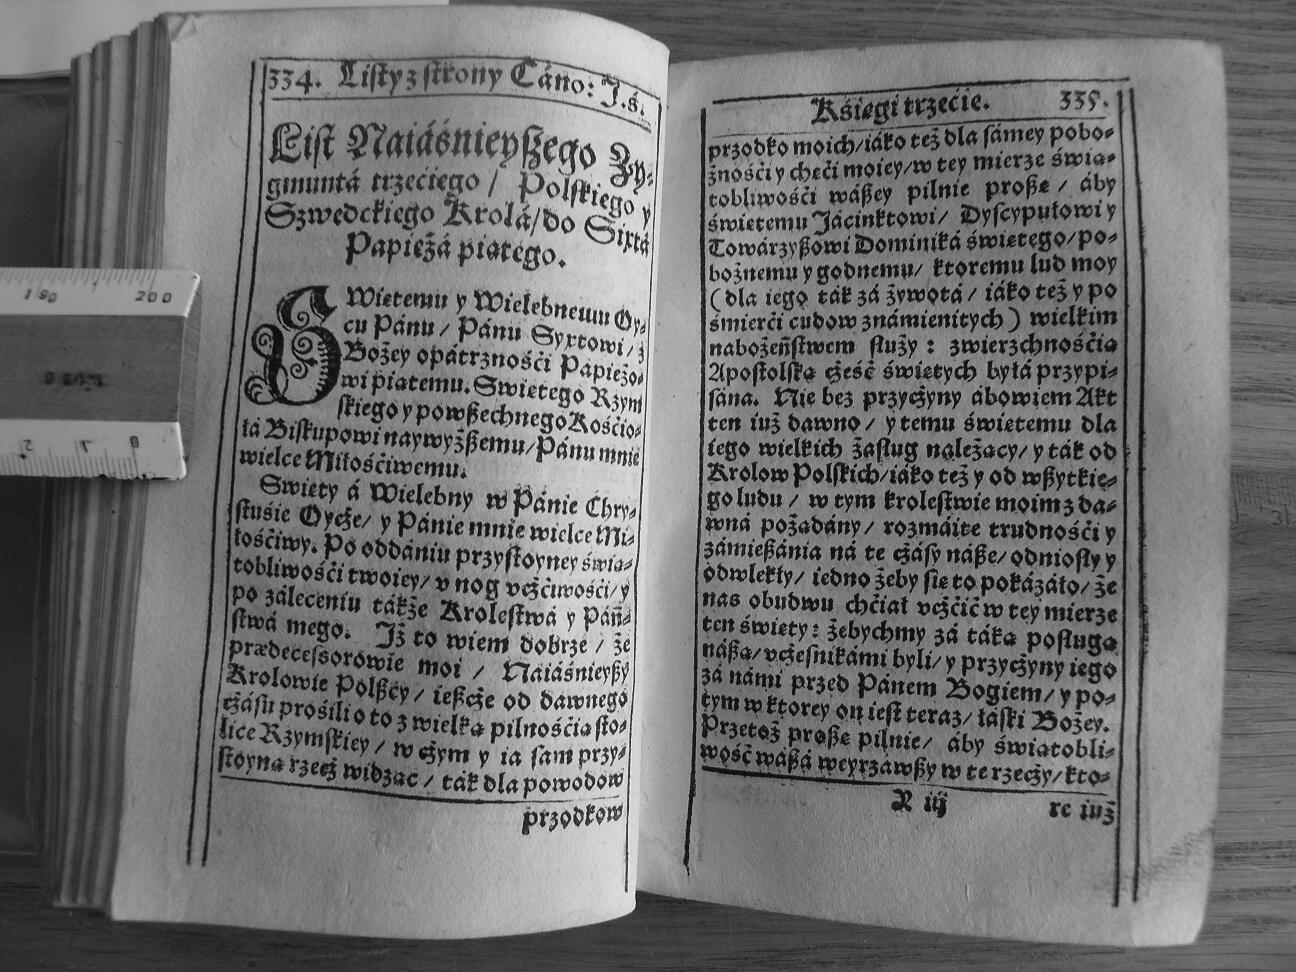 334. Listy z strony Cáno: J.ś.
List Naiáśnieyßego Zy-
gmuntá trzećiego / Polskiego y
Szwedckiego Krolá/do Sixtá
Papieżá piątego.
SWiętemu y Wielebnemu Oy-
cu Pánu / Pánu Syxtowi / z
Bożey opátrznośći Papieżo-
wi piątemu. Swiętego Rzym
skiego y powßechnego Kośćio-
łá Biskupowi naywyżßemu/Pánu mnie
wielce Miłośćiwemu.
Swięty á Wielebny w Pánie Chry-
stuśie Oycże/ y Pánie mnie wielce Mi-
łośćiwy. Po oddániu przystoyney świą-
tobliwośći twoiey/ v nog vcżćiwośći/ y
po záleceniu tákże Krolestwá y Páń-
stwá mego. Jż to wiem dobrze / że
prædecessorowie moi / Naiáśnieyßy
Krolowie Polßcy / ießcże od dawnego
cżásu prośili o to z wielką pilnośćią sto-
lice Rzymskiey / w cżym y ia sam przy-
stoyną rzecż widząc / ták dla powodow
przodkow
Kśięgi trzećie. 335.
przodko moich/iáko też dla sámey pobo-
żnośći y chęći moiey/w tey mierze świą-
tobliwośći wáßey pilnie proßę / áby
świętemu Jácinktowi/ Dyscypułowi y
Towárzyßowi Dominiká świętego/po-
bożnemu y godnemu/ ktoremu lud moy
(dla iego ták zá żywotá / iáko też y po
śmierći cudow známienitych) wielkim
nabożeństwem służy : zwierzchnośćią
Apostolską cżeść świętych byłá przypi-
sána. Nie bez przycżyny ábowiem Akt
ten iuż dawno / y temu świętemu dla
iego wielkich zasług należący/ y ták od
Krolow Polskich/iáko też y od wßytkie-
go ludu / w tym krolestwie moim z da-
wná pożądány / rozmáite trudnośći y
zámießánia ná te cżásy náße/ odniosły y
odwlekły/ iedno żeby się to pokázáło/ że
nas obudwu chćiał vcżćić w tey mierze
ten święty: żebychmy zá táką posługą
náßą/vcżesnikámi byli/ y przycżyny iego
zá námi przed Pánem Bogiem/ y po-
tym w ktorey on iest teraz/ łáski Bożey.
Przetoż proßę pilnie/ áby świątobli-
wość wáßá weyrzawßy w te rzecży/ kto-
R iij re iuż